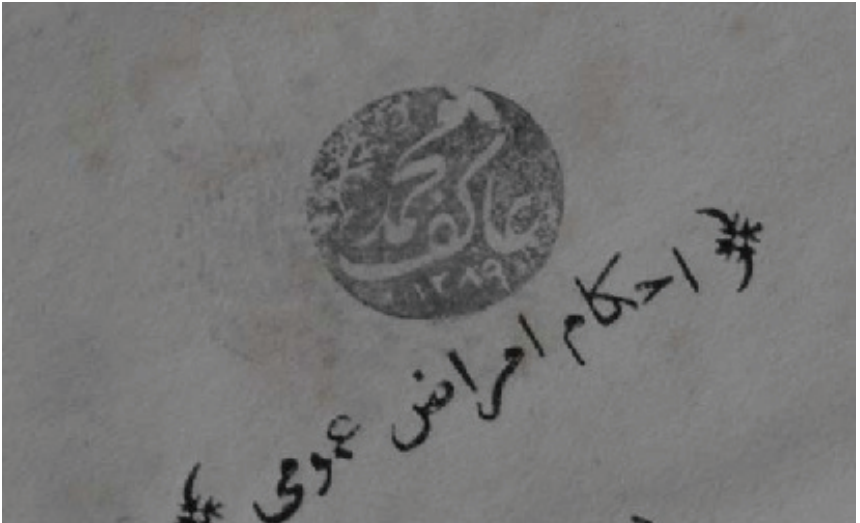 محمد عاكف
١٢٨٩
احكام امراض عمومى